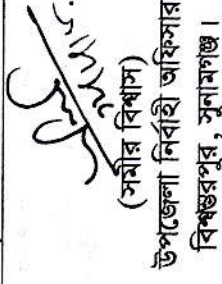 (সমীর বিশ্বাস)
উপজেলা নির্বাহী অফিসার
বিশ্বম্ভরপুর, সুনামগঞ্জ।